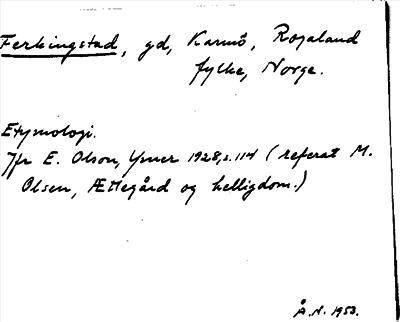 Ferkingstad, gd, Karmö, Rogaland
fylke, Norge.
Etymologi.
Jfr E. Olson, Ymer 1928, s. 114 (referat M.
Olsen, Ættegård og helligdom.)
Å.N. 1953.